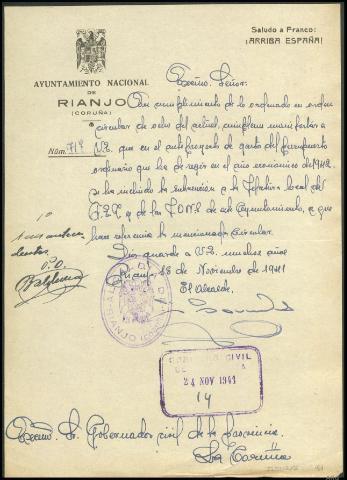 Saludo a Franco:
¡ARRIBA ESPAÑA!
AYUNTAMIENTO NACIONAL
DE
RIANJO
(CORUÑA)
Núm. 719
Excmo. Señor:
En cumplimiento de lo ordenado en orden
circular de ocho del actual, cumpleme manifestar a
V.E. que en el anteproyecto de gasto del presupuesto
ordinario que ha de regir en el año economico de 1942
se ha incluido la subvencion a la Jefatura local de
F.E.T. y de las J.O.N.S. de este Ayuntamiento, a que
hace referencia la mencionada circular.
Dios guarde a V.E. muchos años
Rianjo, 18 de Noviembre de 1941
El Alcalde,
1º
a sus antece-
dentes
P.O.
GOBIERNO CIVIL
24 NOV 1941
14
Excmo. Sr. Gobernador civil de la provincia.
La Coruña